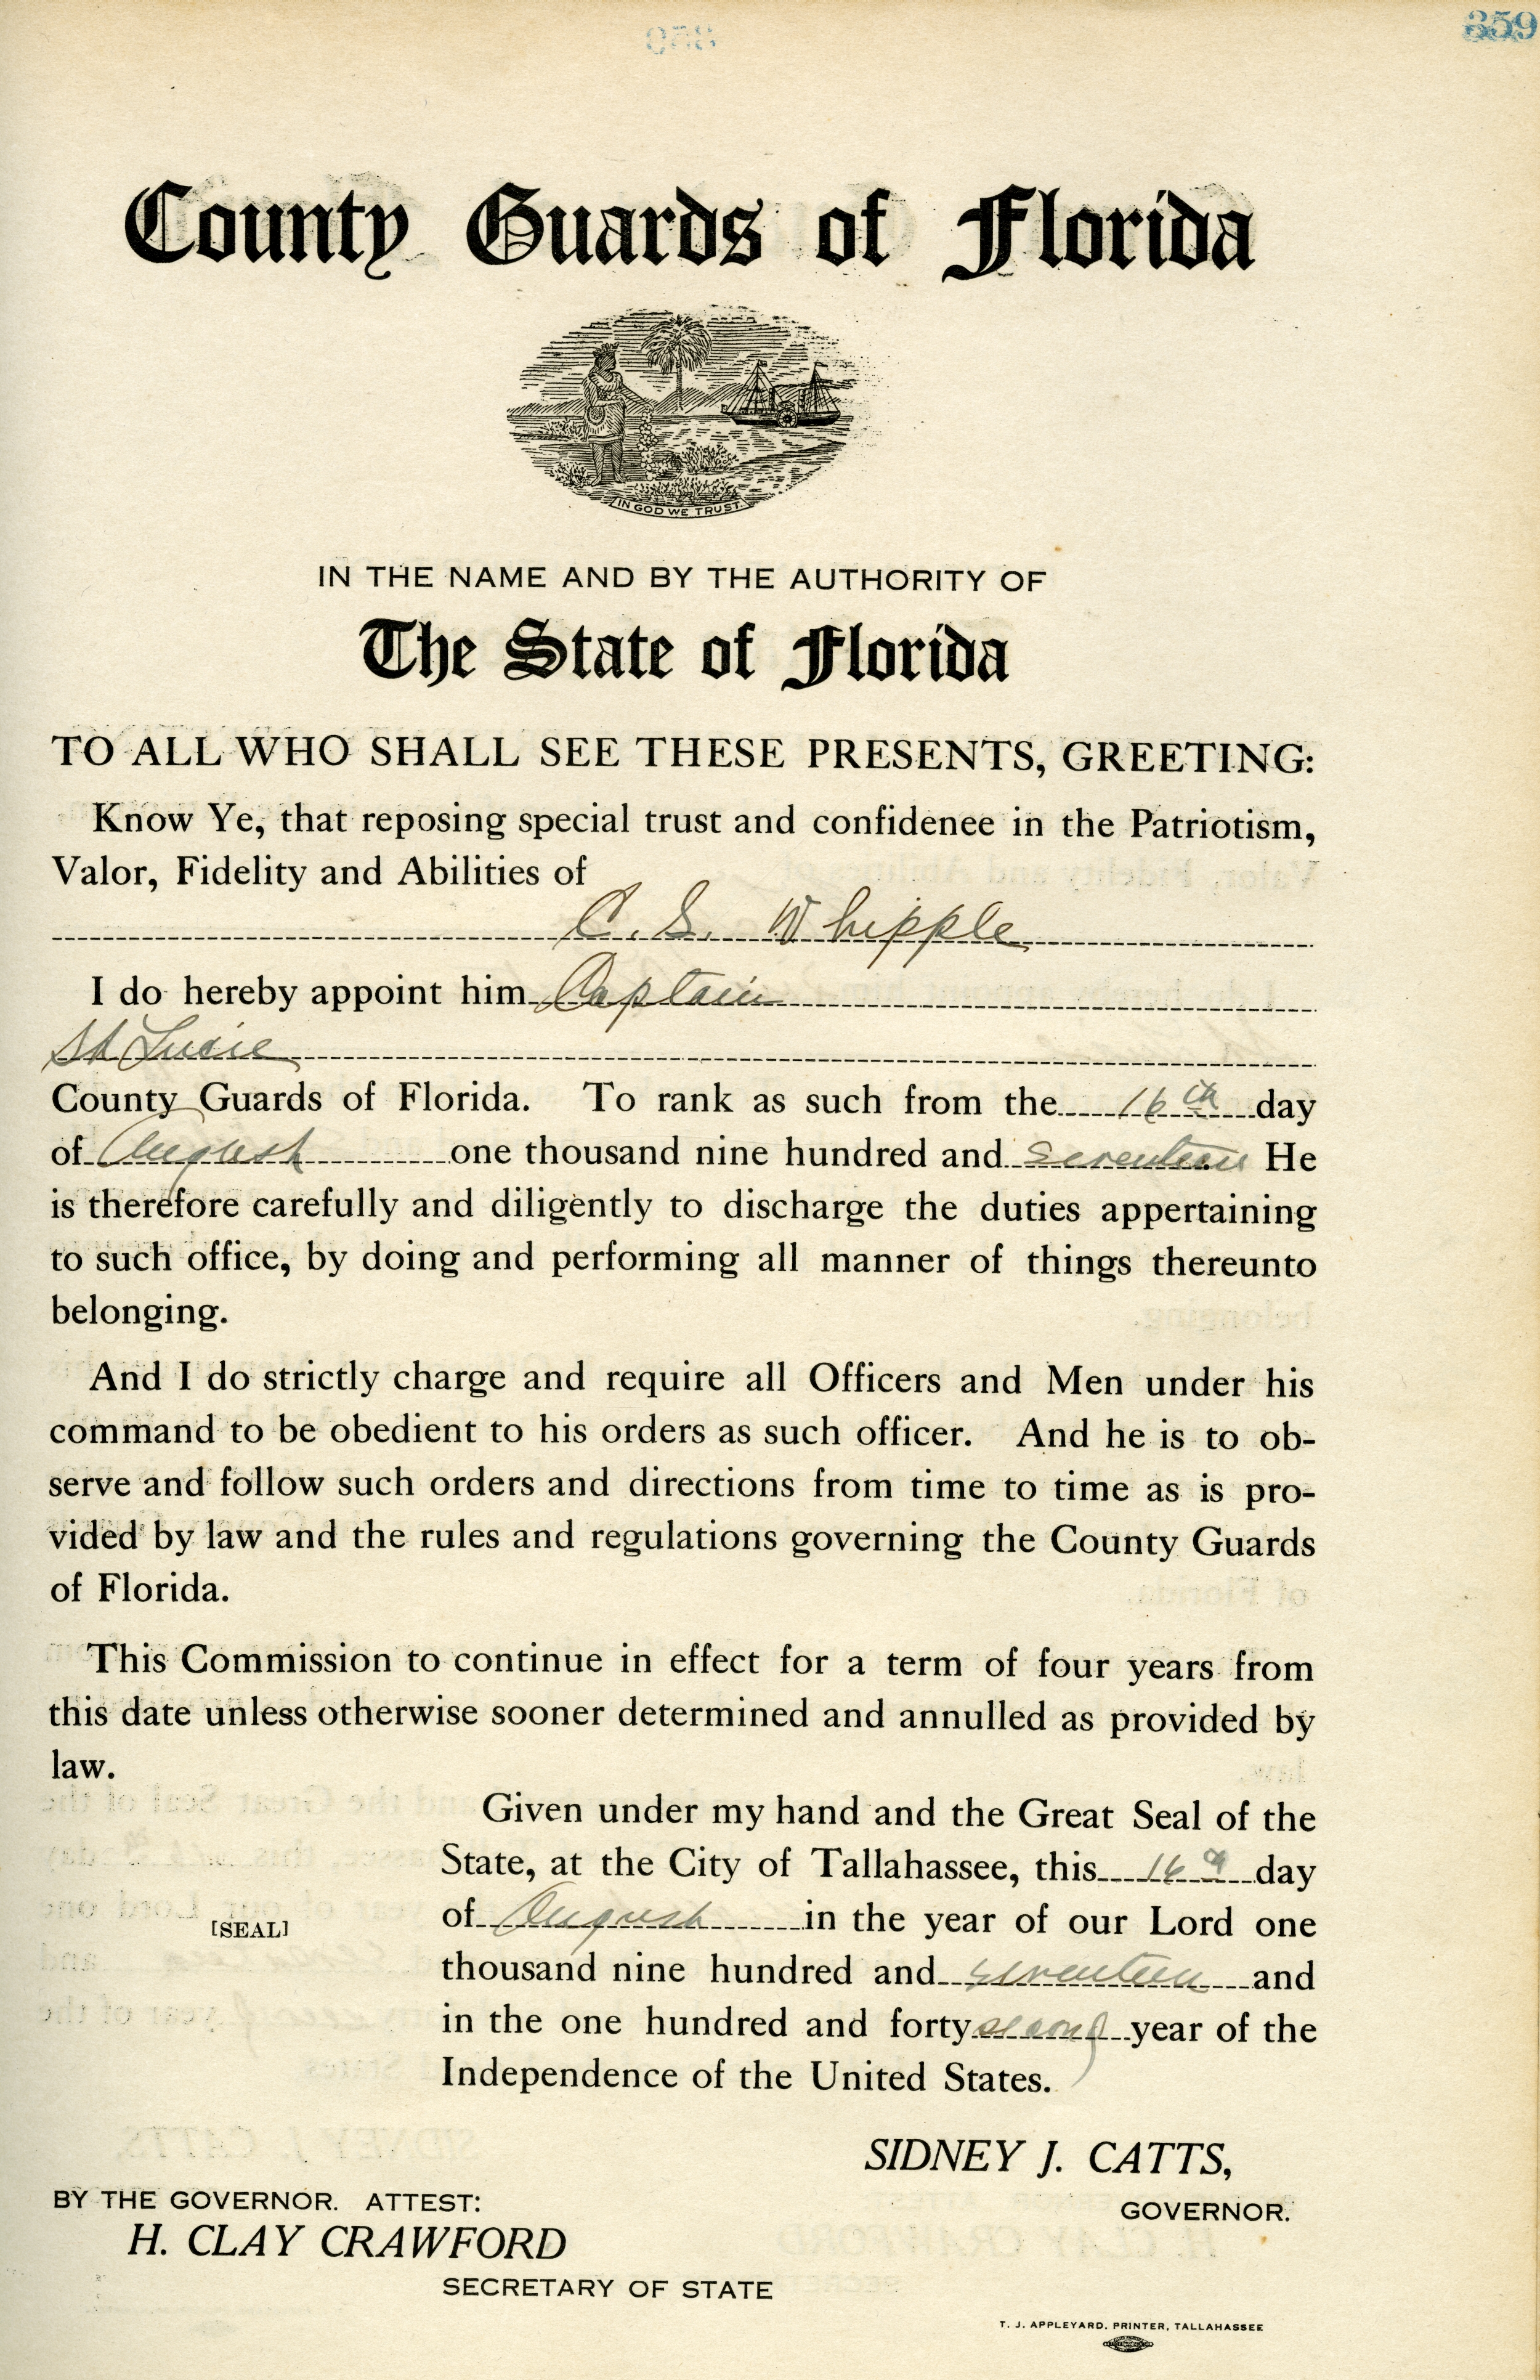 359
County Guards of Florida
IN GOD WE TRUST.
IN THE NAME AND BY THE AUTHORITY OF
The State of Florida
TO ALL WHO SHALL SEE THESE PRESENTS, GREETING:
Know Ye, that reposing special trust and confidenee in the Patriotism,
Valor, Fidelity and Abilities of
C. S. Whipple
I do hereby appoint him Captain
St Lucie
County Guards of Florida. To rank as such from the 16th day
of August one thousand nine hundred and seventeen He
is therefore carefully and diligently to discharge the duties appertaining
to such office, by doing and performing all manner of things thereunto
belonging.
And I do strictly charge and require all Officers and Men under his
command to be obedient to his orders as such officer. And he is to ob-
serve and follow such orders and directions from time to time as is pro-
vided by law and the rules and regulations governing the County Guards
of Florida.
This Commission to continue in effect for a term of four years from
this date unless otherwise sooner determined and annulled as provided by
law.
Given under my hand and the Great Seal of the
State, at the City of Tallahassee, this 16th day
of August in the year of our Lord one
[SEAL]
thousand nine hundred and seventeen and
in the one hundred and forty second year of the
Independence of the United States.
SIDNEY J. CATTS,
GOVERNOR.
BY THE GOVERNOR. ATTEST:
H. CLAY CRAWFORD
SECRETARY OF STATE
T. J. APPLEYARD, PRINTER, TALLAHASSEE